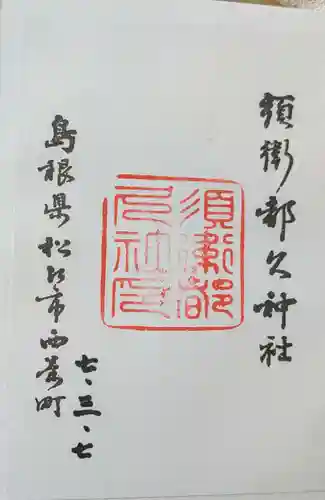 須衛都久神社
須衛都
久神社印
島根県松江市西茶町
七、三、七